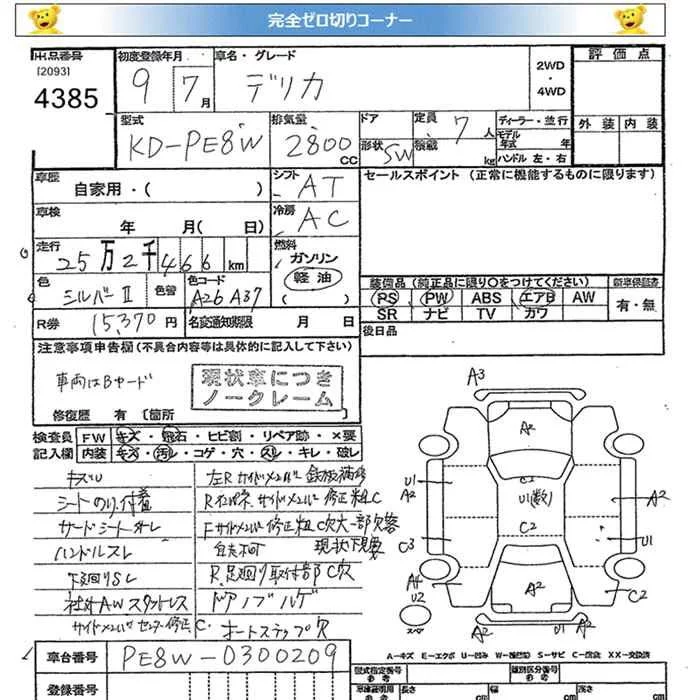 完全ゼロ切りコーナー
出品番号
[2093]
4385
初度登録年月
9 7月
車名・グレード
デリカ
2WD
・
4WD
評価点
外装 内装
型式
KD-PE8W
排気量
2800
CC
ドア
形状
SW
定員
7人
積載
kg
ディーラー・並行
モデル
年式 年
ハンドル 左・右
車歴
自家用・( )
シフト
AT
セールスポイント (正常に機能するものに限ります)
車検
年 月( 日)
冷房
AC
走行
25万2千466km
燃料
ガソリン
軽油
( )
色
シルバーII
色替
色コード
A26 A37
装備品 (純正品に限り○をつけてください)
新車保証書
PS PW ABS エアB AW
SR ナビ TV カワ
有・無
R券 15,370円
名変通知期限 月 日
後日品
注意事項申告欄(不具合内容等は具体的に記入して下さい)
車両はBヤード
現状車につき
ノークレーム
修復歴 有 〔箇所
検査員
記入欄
FW キズ・飛石・ヒビ割・リペア跡・×要
内装 キズ・汚レ・コゲ・穴・スレ・キレ・破レ
キズU
シートのり付着
サードシートヨレ
ハンドルスレ
下廻りSし
社外AWスタッドレス
サイドメンバーセンター修正
左Rサイドメンバー鉄板補修
Rインパネ サイドメンバー 修正 粗 C
Fサイドメンバー修正粗 C穴大一部欠落
自走不可 現状下見要
R足廻り取付部C穴
ドアノブハゲ
C.オートステップ穴
A3
A2
C2
U1(数)
C2
A2
U1
A2
C3
A4
U2
A2
U1
C2
A2
U1
A2
スペア
A-キズ E-エクボ U-凹み W-補(凹) S-サビ C-腐食 XX-交換済
車台番号
PE8W-0300209
登録番号
型式指定番号
参考
類別区分番号
参考
車庫証明用
参考
長さ
cm
幅
cm
高さ
cm